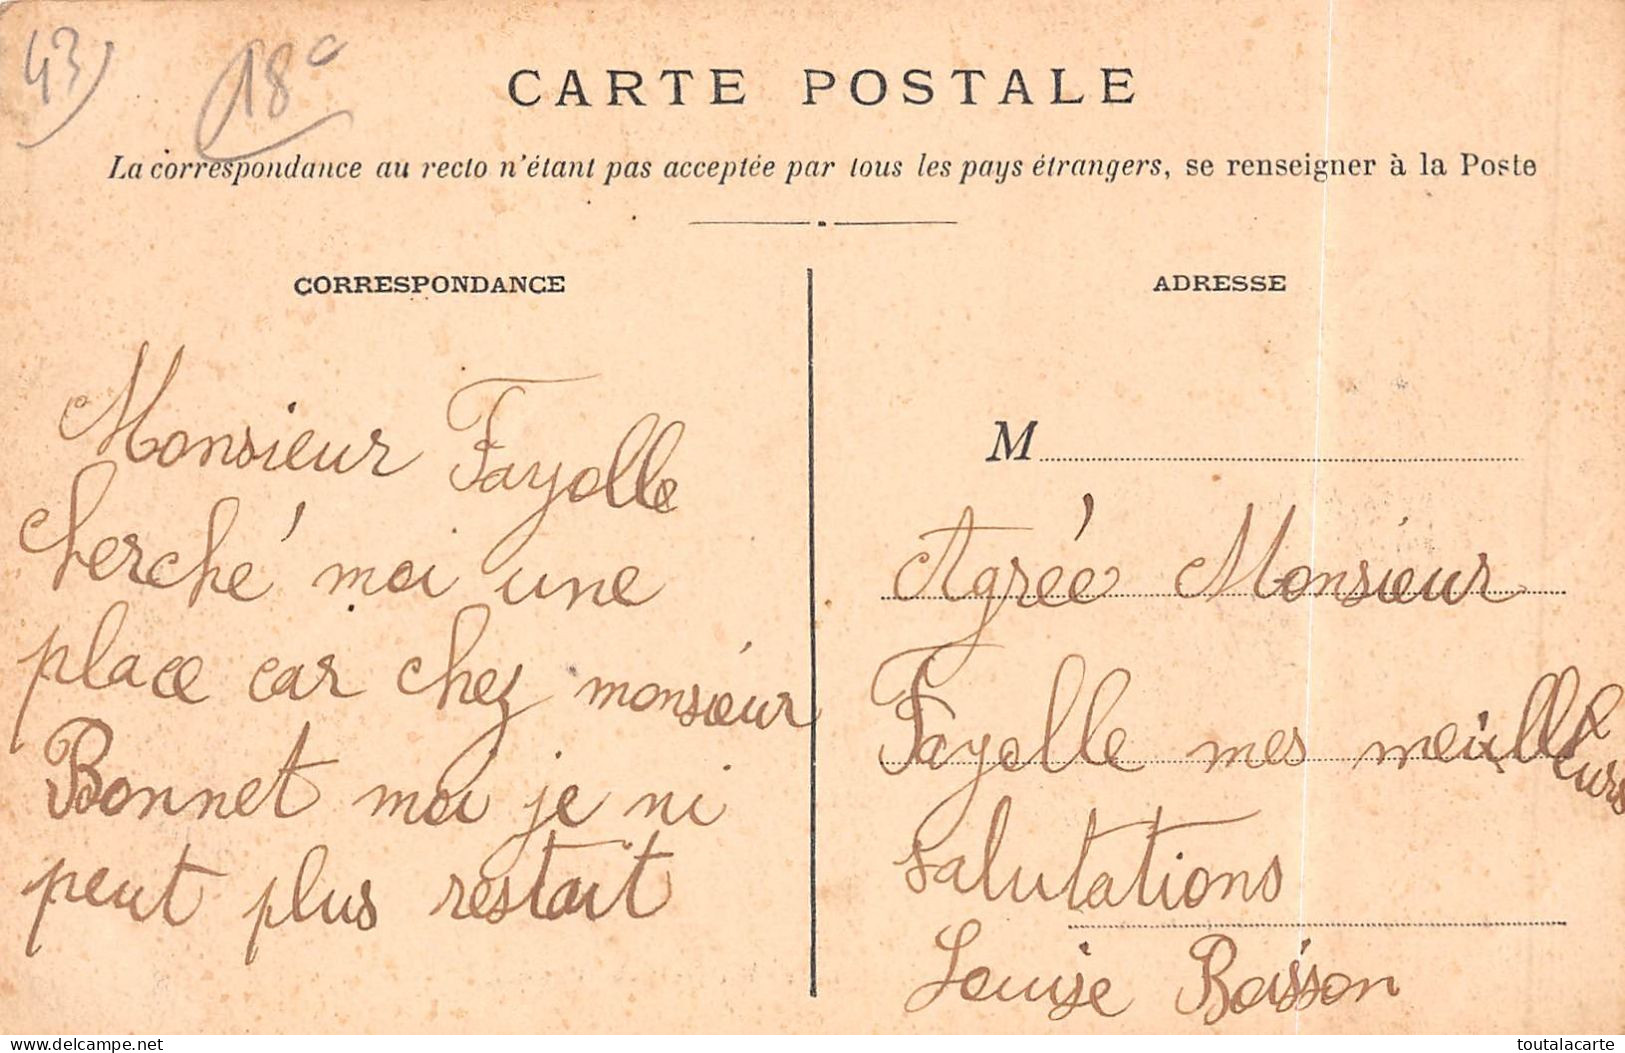 43)
18c
CARTE POSTALE
La correspondance au recto n'étant pas acceptée par tous les pays étrangers, se renseigner à la Poste
CORRESPONDANCE
Monsieur Fayolle
cherché moi une
place car chez monsieur
Bonnet moi je ni
peut plus restait
ADRESSE
M
Agrée Monsieur
Fayolle mes meilleurs
salutations
Louise Boisson
www.delcampe.net
toutalacarte